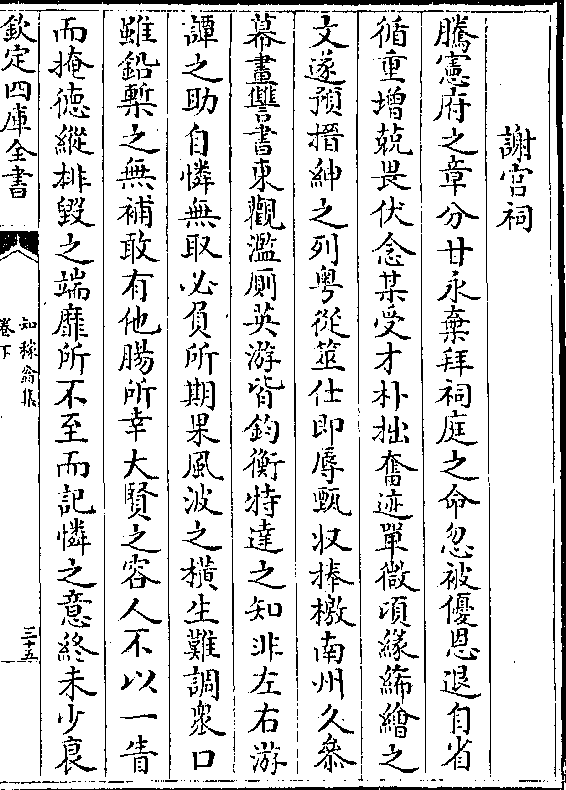 謝宮祠
騰憲府之章分甘永棄拜祠庭之命忽被優恩退自省
循重増兢畏伏念某受才朴拙奮迹單微頃緣絺繪之
文遂預搢紳之列粤從筮仕即辱甄收捧檄南州久叅
幕畫讐書東觀濫厠英游皆鈞衡特達之知非左右游
譚之助自憐無取必負所期果風波之横生難調衆口
雖鉛槧之無補敢有他腸所幸大賢之容人不以一眚
而掩徳縱排毀之端靡所不至而記憐之意終未少衰
欽定四庫全書
知稼翁集
卷下
三十五